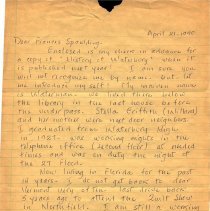 April 21, 1990
Dear Frances Spaulding,
Enclosed is my check in advance for
a copy of "History of Waterbury" when it
is published next year. I am sure you
will not recognize me by name but let
me introduce myself! My maiden name
is We lived there below
the library in the last house before
the underpass. Stella
and her mother were next door neighbors.
I graduated from Waterbury High
in 1921. Was working nights in the
telephone office (second floor) at
times and was on duty the night of
the 27 Flood.
Now living in Florida the past
years I do get back to dear
Vermont very often. Last drive back
3 years ago to attend the Quilt Show
in Northfield. I am still a